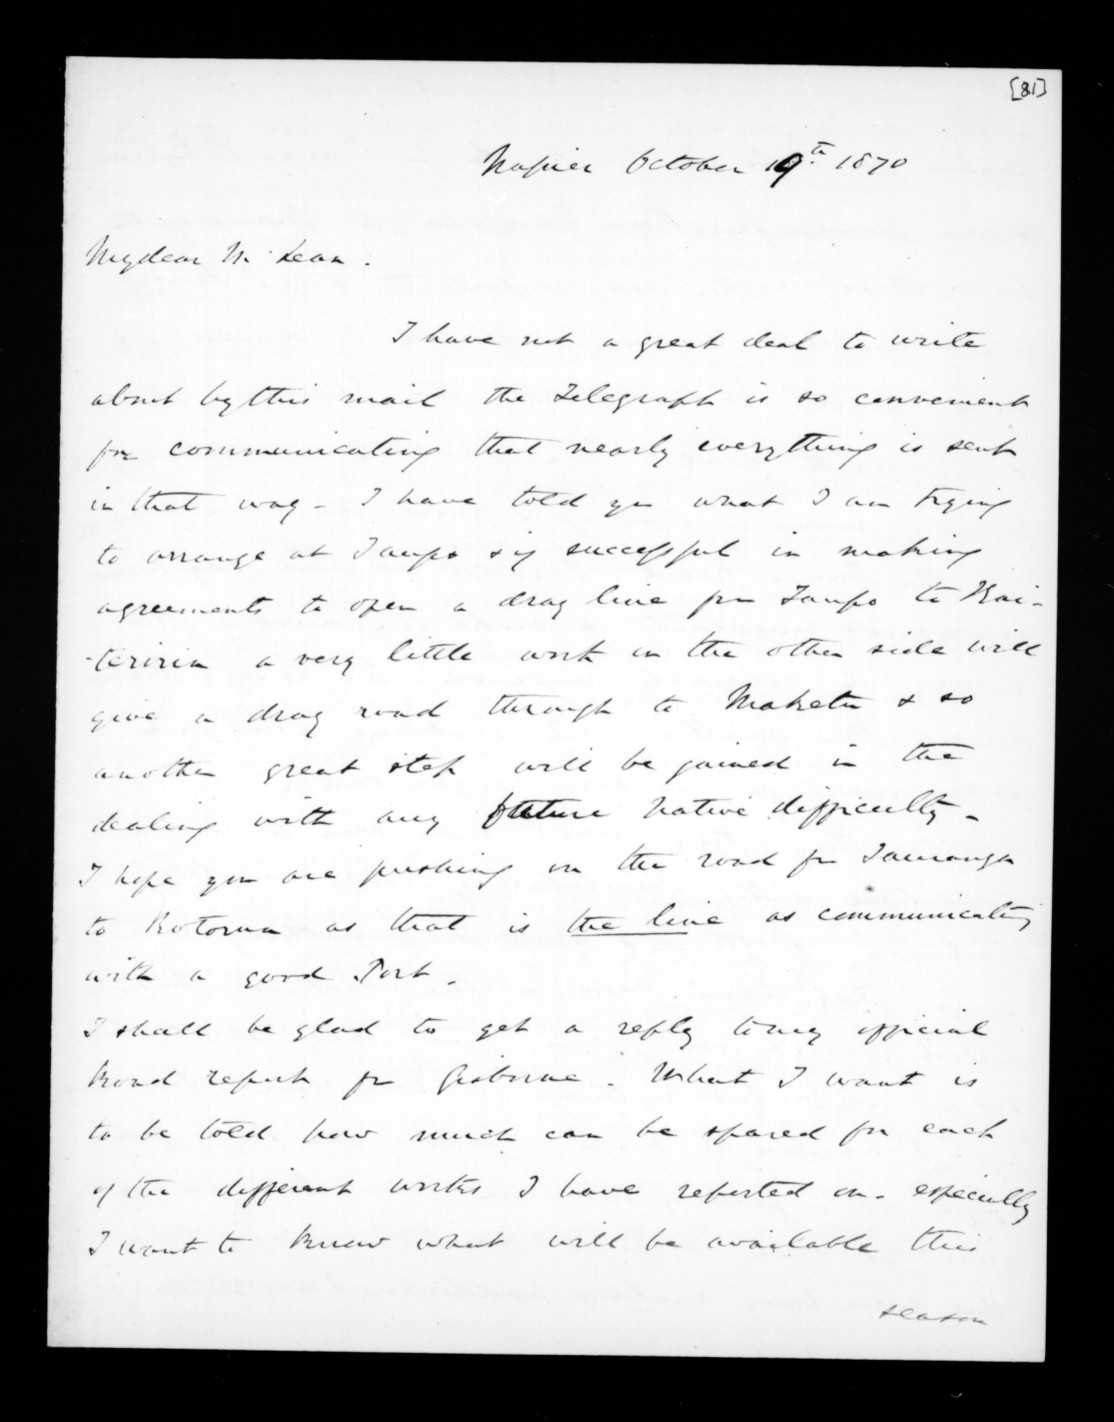 [81]
Napier October 19th. 1870
My dear McLean.
I have not a great deal to write
about by this mail the Telegraph is so convenient
for communicating that nearly everything is sent
in that way - I have told you what I am trying
to arrange at Taupo & if successful in making
agreements to open a dray line from Taupo to Kai-
-teriria a very little work on the other side will
give a dray road through to Maketu & so
another great step will be gained in the
dealing with any future Native difficulty -
I hope you are pushing on the road from Tauranga
to Rotorua as that is the line as communicating
with a good Port.
I shall be glad to get a reply to my official
Road report from Gisborne. What I want is
to be told how much can be spared for each
of the different works I have reported on - especially
I want to know what will be available this
season